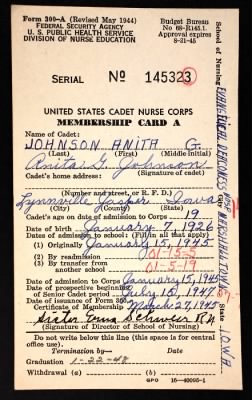 Form 300-A (Revised May 1944)
FEDERAL SECURITY AGENCY
U. S. PUBLIC HEALTH SERVICE
DIVISION OF NURSE EDUCATION
Budget Bureau
No 68-R145.1.
Approval expires
8-31-45
SERIAL No 145323
UNITED STATES CADET NURSE CORPS
MEMBERSHIP CARD A
Name of Cadet:
JOHNSON ANITA G.
(Last) (First) (Middle initial)
Anita G. Johnson
Cadet's home address: (Signature of cadet)
(Number and street, or R. F. D.)
Lynnville Jasper Iowa
(City) (County) (State)
Cadet's age on date of admission to Corps 19
Date of birth January 7, 1926
Dates of admission to school: (Fill in all that apply)
(1) Originally January 15, 1945
(2) By readmission
(3) By transfer from another school
Date of admission to Corps January 15, 1945
Date of prospective beginning of Senior Cadet period July 15, 1947
Date of issuance of Form 300 Certificate of Membership March 27, 1945
Sister R.N.
(Signature of Director of School of Nursing)
Do not write below this line (this space is for central office use).
Termination by— Date
Graduation 1-22-48
Withdrawal (a) (b)
GPO 16-40095-1
School of Nursing EVANGELICAL DEACONESS HOSP.
City MARSHALLTOWN
State IOWA